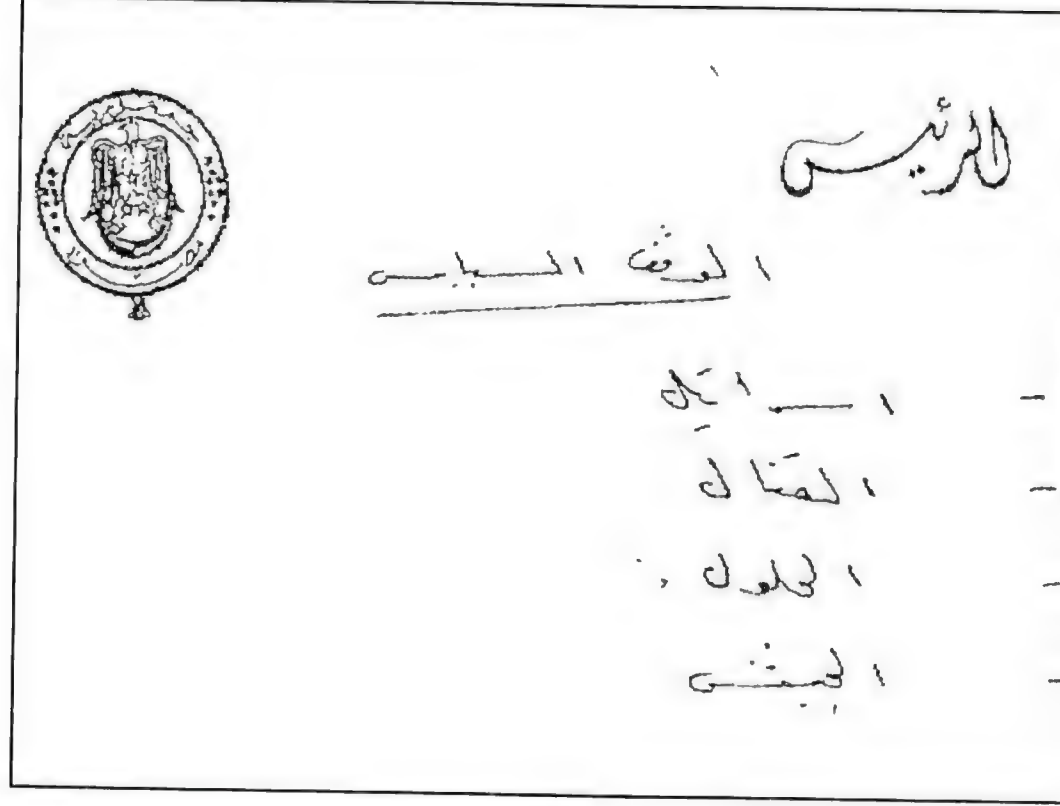 الرئيس
الموقف السياسى
- اسرائيل
- القتال
- الحلول
- الجيش